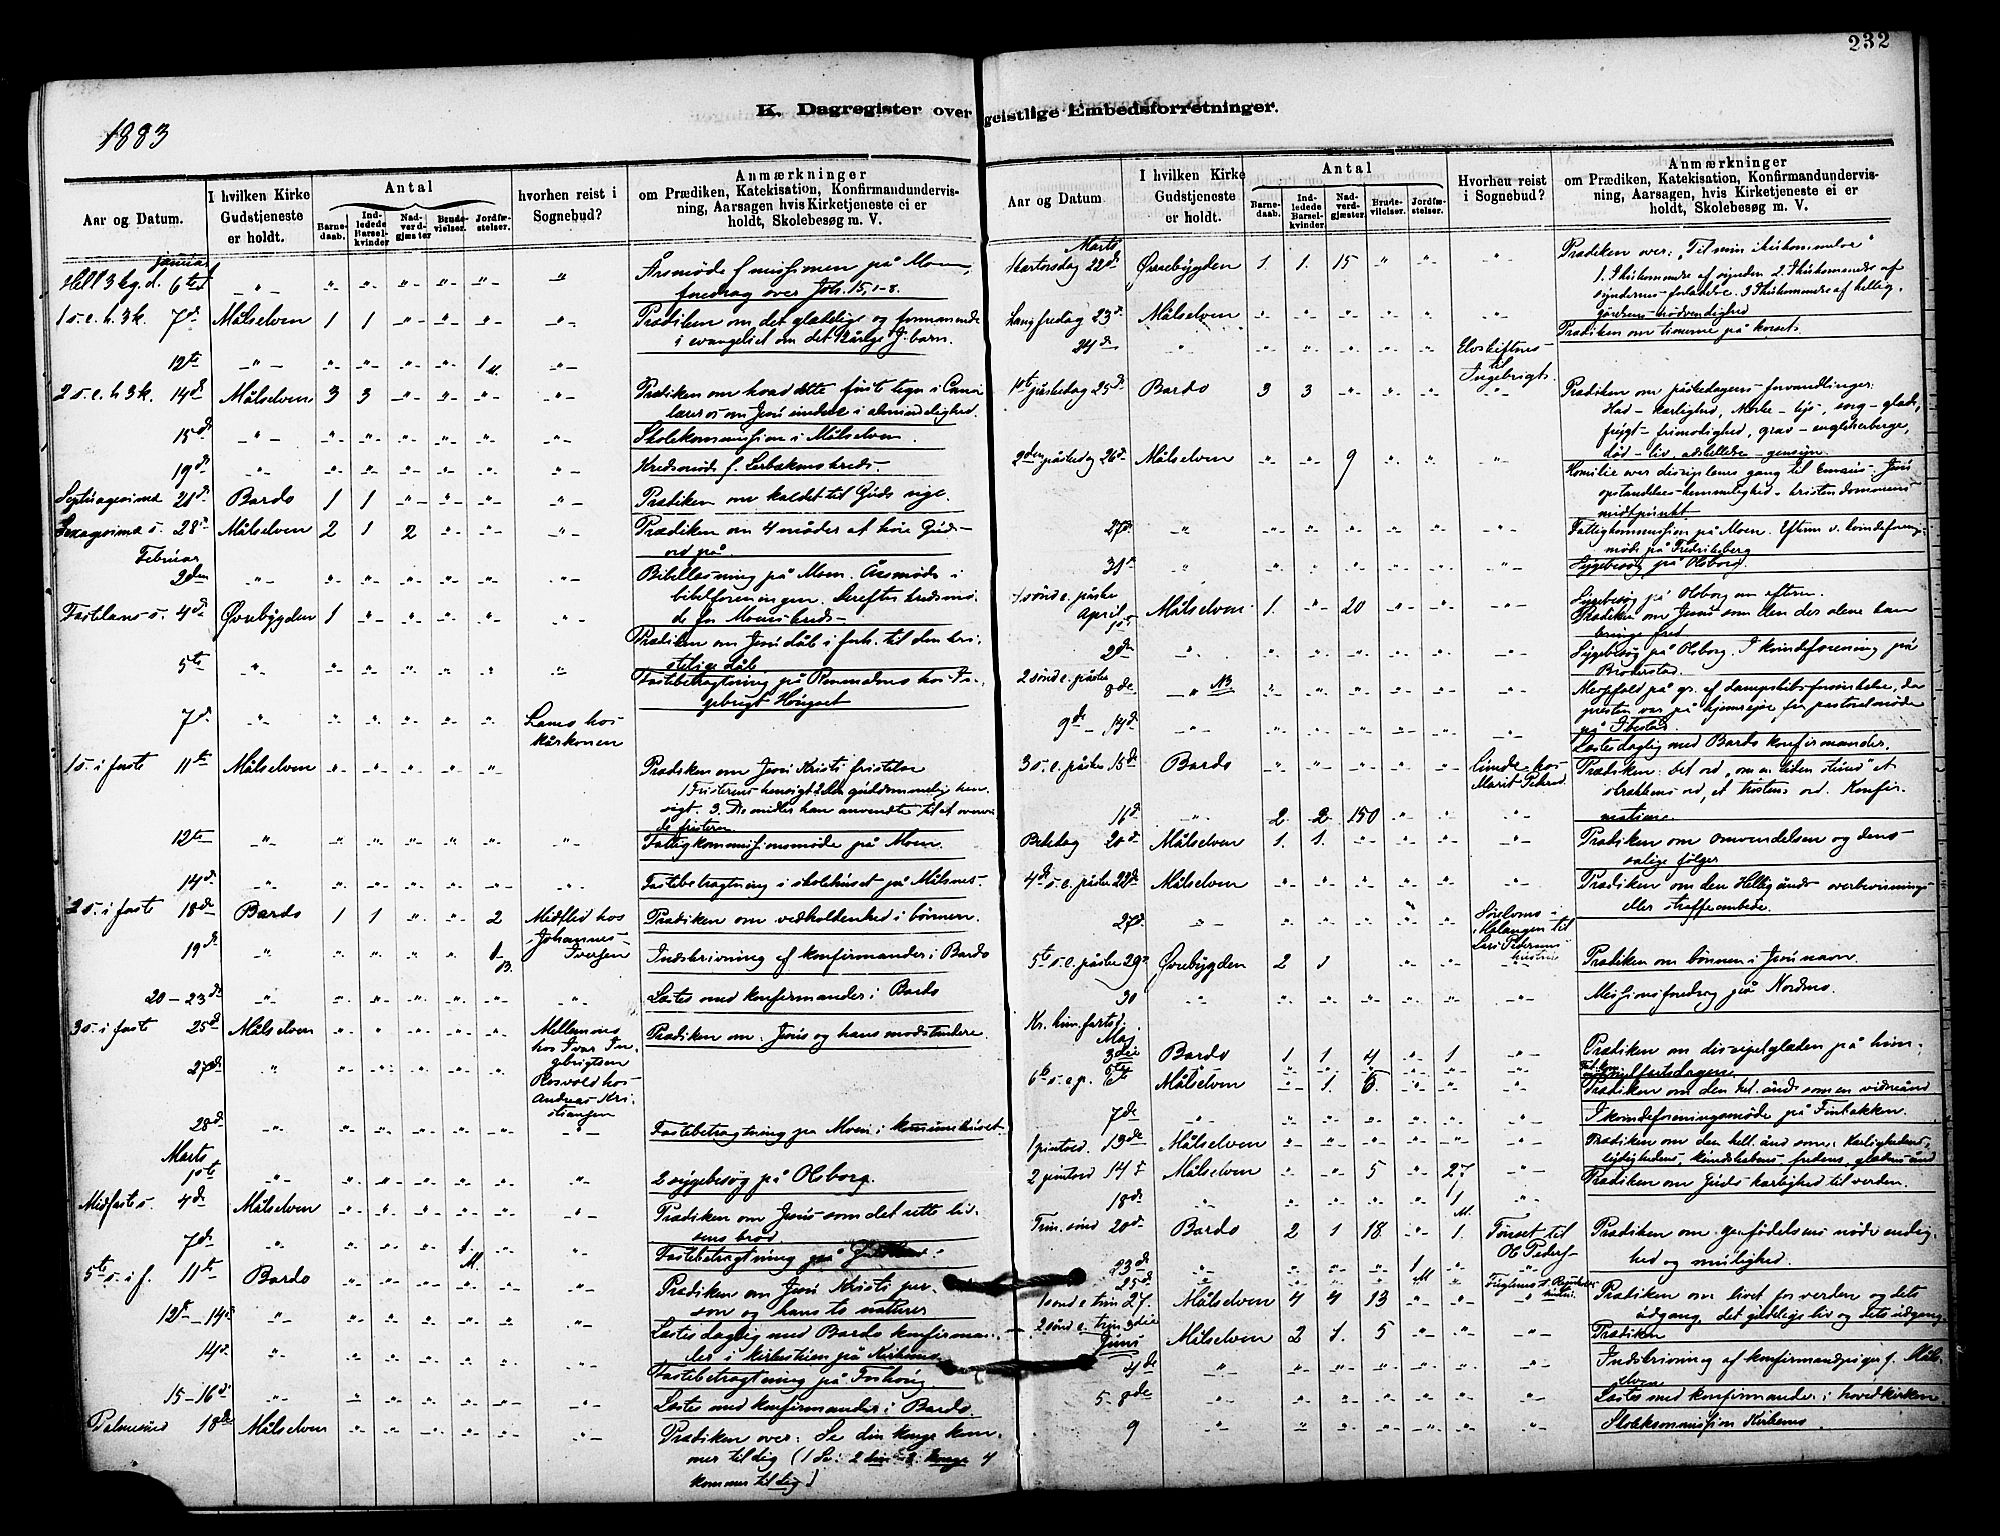 232
K. Dagregister over geistlige Embedsforretninger.
1883
Aar og Datum.
I hvilken Kirke Gudstjeneste er holdt.
Antal
Barnedaab.
Indledede Barselkvinder
Nadverdgjæster
Brudevielser.
Jordfæstelser.
hvorhen reist i Sognebud?
Anmærkninger
om Prædiken, Katekisation, Konfirmandundervisning, Aarsagen hvis Kirketjeneste ei er holdt, Skolebesøg m. V.
Januar
Hell 3 kg. d. 6te
Årsmøde f missionen på Moen,
foredrag over Joh. 15, 1-8.
1 s. e. h. 3 k. 7de Målselven 1 1
Prædiken om det glædelige og formanende
i evangeliet om det 12årige J. barn.
12te 1 M.
2 s. e. h 3 k. 14de Målselven 3 3
Prædiken om hvad dette første tegn i Cana
lærer os om Jesu indtræ i almindelighed.
15de Skolekommission i Målselven.
19de Kredsmøde f.
Septuagesima 21de Bardo 1 1 Prædiken om kaldet til Guds rige.
Sexagesima s. 28de Målselven 2 1 2 Prædiken om 4 måder at høre Guds
ord på.
Februar
2den Bibellæsning på Moen. Årsmøde i
bibelforeningen. Derefter kredsmø-
de for Moens kreds
Fastelavns s. 4de Øvrebygden 1
Prædiken om Jesu dåb i forh. til den kri-
stelige dåb
5te Fastebetragtning på hos In-
gebrigt
7de
1 s. i faste 11te Målselven
Prædiken om Jesu Kristi fristelse
1 Fristerens hensigt 2 Den guddommelig hen-
sigt. 3. De midler han anvendte til at overvin-
de fristeren
12te Fattigkommissionsmøde på Moen.
14de Fastebetragtning i skolehuset på Målsnes.
2 s. i faste 18de Bardo 1 1 2 hos Johannes Iversen Prædiken om vedholdenhed i bønnen.
19de 1 B. Indskrivning af konfirmander i Bardo
20-23de Læstes med konfirmander i Bardo
3 s. i faste 25de Målselven hos Ivar In-
gebrigtsen
Prædiken om Jesus og hans modstandere
27de Rosvold hos
Andreas Kri-
stiansen
28de Fastebetragtning på Moen i komunehuset.
Marts
1ste 2 sygebesøg på Olsborg.
Midfaste s. 4de Målselven Prædiken om Jesus som det rette liv-
sens brød
7de 1 M. Fastebetragtning på
5te s. i f. 11te Bardo Prædiken om Jesu Kristi per-
son og hans to naturer
12te-14de Læstes daglig med Bardo konfirman-
der i kirkestuen på
14de Fastebetragtning på
15-16de Læstes med konfirmander i Bardo.
Palmesønd 18de Målselven Prædiken over: Se din konge kom-
mer til dig (1 Se: 2 din 3: konge 4
kommer til dig)
Aar og Datum
I hvilken Kirke Gudstjeneste er holdt.
Antal
Barnedaab.
Indledede Barselkvinder.
Nadverdgjæster.
Brudevielser.
Jordfæstelser.
Hvorhen reist i Sognebud?
Anmærkninger
om Prædiken, Katekisation, Konfirmandundervisning, Aarsagen, hvis Kirketjeneste ei er holdt, Skolebesøg m. V.
Marts
Skærtorsdag 22de Øvrebygden 1. 1. 15
Prædiken over: Til min ihukommelse
1. Ihukommelse af synden 2. Ihukommelse af
syndernes forladelse. 3 Ihukommelse af hellig-
gørelsens nødvendighed
Langfredag 23de Målselven Prædiken om timerne på korset.
24de til
Ingebrigt
1ste påskedag 25de Bardo 3 3 Prædiken om påskedagens forvandlinger:
Had - kærlighed, Mørke - lys, sorg - glæde,
frygt - frimodighed, grav - engleherberge,
død - liv, adskillelse - gensyn.
2den påskedag 26de Målselven 9 Homilie over disciplenes gang til Emaus. Jesu
opstandelses hemmelighed - kristendommens
midtpunkt
27de Fattigkommission på Moen. Efterm. v. kvindeforenings-
møde på Fredriksberg
31te Sygebesøg på Olsborg.
1 sønd e. påske
April
1ste Målselven 1. 20
Sygebesøg på Olsborg om efterm.
Prædiken om Jesus som den der alene kan
bringe fred
2den Sygebesøg på Olsborg. I kvindeforening på
Broderstad
2 sønd e. påske
8de NB
Messefald på gr. af dampskibsforsinkelse, da
presten var på hjemrejse fra pastoralmøde
på Ibestad.
9de - 14de Læstes daglig med Bardo konfirmander.
3 s. e. påske 15de Bardo hos
Marit Prædiken: Det ord „om en liden stund" et
strækkens ord, et trøstens ord. Konfir-
mation
16de 2 2 150
Bededag 20de Målselven 1. 1. Prædiken om omvendelsen og dens
salige følger
4de s. e. påske 22de Målselven Prædiken om den Hellig ånds overbevisnings-
eller straffeembede.
27de
Malangen til
Lars Pedersens
hustru
5te s. e. påske 29de Øvrebygden 2 1 Prædiken om bønnen i Jesu navn.
30 Missionsforedrag på Nordmo.
Kr. him. fartsd.
Maj
3die Bardo 1 1 4 1 Prædiken om discipelglæden på him-
melfartsdagen
6te s. e. p. 6te Målselven 1. 6. Prædiken om den hel. ånd som en vidneånd
7de I kvindeforeningsmøde på Finbakken.
1 pintsed. 13de Målselven Prædiken om den hell. ånd som: kærlighedens,
lydighedens, kundskabens, fredens, glædens ånd
2 pintsed 14de Målselven 5 27 Prædiken om Guds kærlighed til verden.
18de 1 M.
Trin. sønd 20de Bardo 2 1 18 1. til
Ol Peders Prædiken om genfødelsens nødvendig-
hed og mulighed.
23de 1 M
25de
1 sønd e trin 27. Målselven 4 4 13 Prædiken om livet for verden og dets
udgang, det gudelige liv og dets udgang
2 sønd e. trin 3die
Juni Målselven 2 1. 5 Prædiken
4de Indskrivning af konfirmandpiger f. Mål-
selven
5-8de Læstes med konfirmander i hovedkirken
9 Skolekommission Kirkemo.